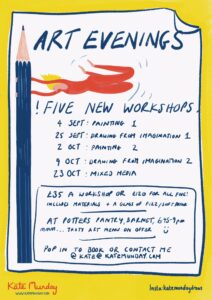 ART EVENINGS
! FIVE NEW WORKSHOPS!
4 SEPT: PAINTING 1
25 SEPT: DRAWING FROM IMAGINATION 1
2 OCT: PAINTING 2
9 OCT: DRAWING FROM IMAGINATION 2
23 OCT: MIXED MEDIA
£35 A WORKSHOP OR £120 FOR ALL FIVE!
INCLUDES MATERIALS + A GLASS OF FIZZ/SOFT DRINK
AT POTTERS PANTRY, BARNET, 6.15-9PM
MMM... TASTY ART MENU ON OFFER
POP IN TO BOOK OR CONTACT ME
@ KATE@KATEMUNDAY.COM
Kate Munday
www.katemunday.com
Insta: katemundaydraws